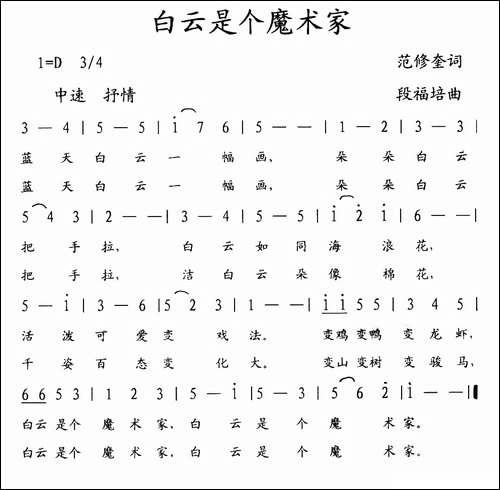 白云是个魔术家
1=D 3/4 范修奎词
中速 抒情 段福培曲
3 — 4 | 5 — 5 | i 7 6 | 5 — — | 1 — 2 | 3 — 3 |
蓝 天 白 云 一 幅 画, 朵 朵 白 云
蓝 天 白 云 一 幅 画, 朵 朵 白 云
5 4 3 | 2 — — | 3 — 4 | 5 — 5 | i 2 i | 6 — — |
把 手 拉, 白 云 如 同 海 浪 花,
把 手 拉, 洁 白 云 朵 像 棉 花,
5 — i | 3 — 6 | 5 2 3 | 1 — — | i i 5 5 | 3 4 5 |
活 泼 可 爱 变 戏 法。 变鸡 变鸭 变 龙 虾,
千 姿 百 态 变 化 大。 变山 变树 变 骏 马,
6 6 5 3 | 1 2 3 | 5 — i | 5 — 3 | 5 6 2 | i — — ‖
白云 是个 魔 术 家, 白 云 是 个 魔 术 家。
白云 是个 魔 术 家, 白 云 是 个 魔 术 家。